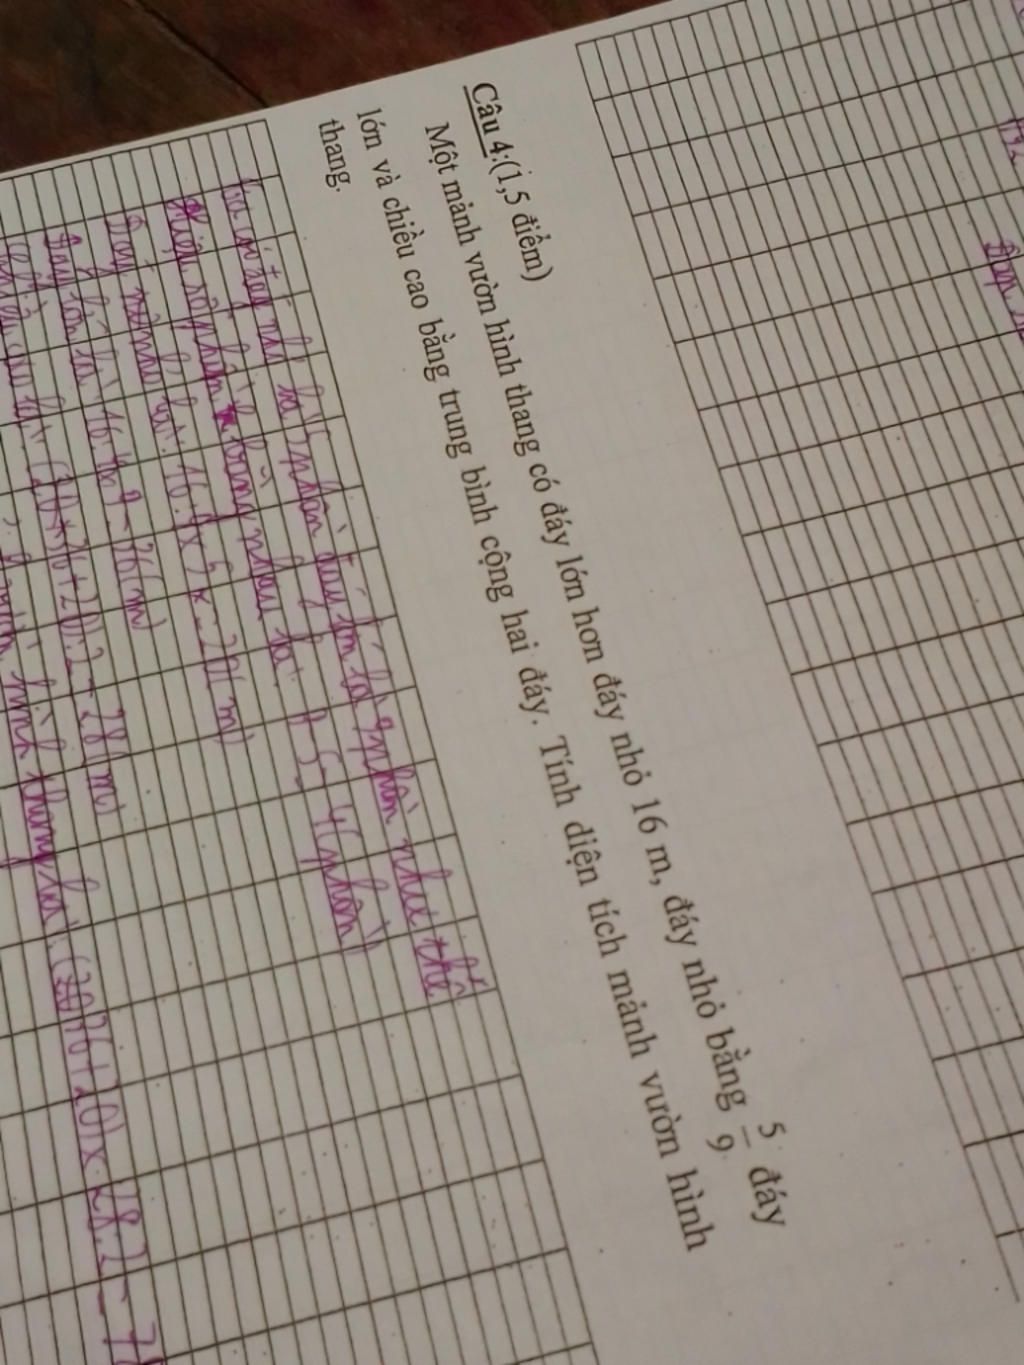 Câu 4:(1,5 điểm)
Một mảnh vườn hình thang có đáy lớn hơn đáy nhỏ 16 m, đáy nhỏ bằng 5/9 đáy
lớn và chiều cao bằng trung bình cộng hai đáy. Tính diện tích mảnh vườn hình
thang.
đáy nhỏ là 5 phần đáy lớn là 9 phần như thế
Hiệu số phần bằng nhau là: 9-5=4(phần)
Đáy nhỏ là: 16:4x5=20(m)
Đáy lớn là: 16:4x9=36(m)
là: (36+20):2=28(m)
hình thang là: (36+20)x28:2=